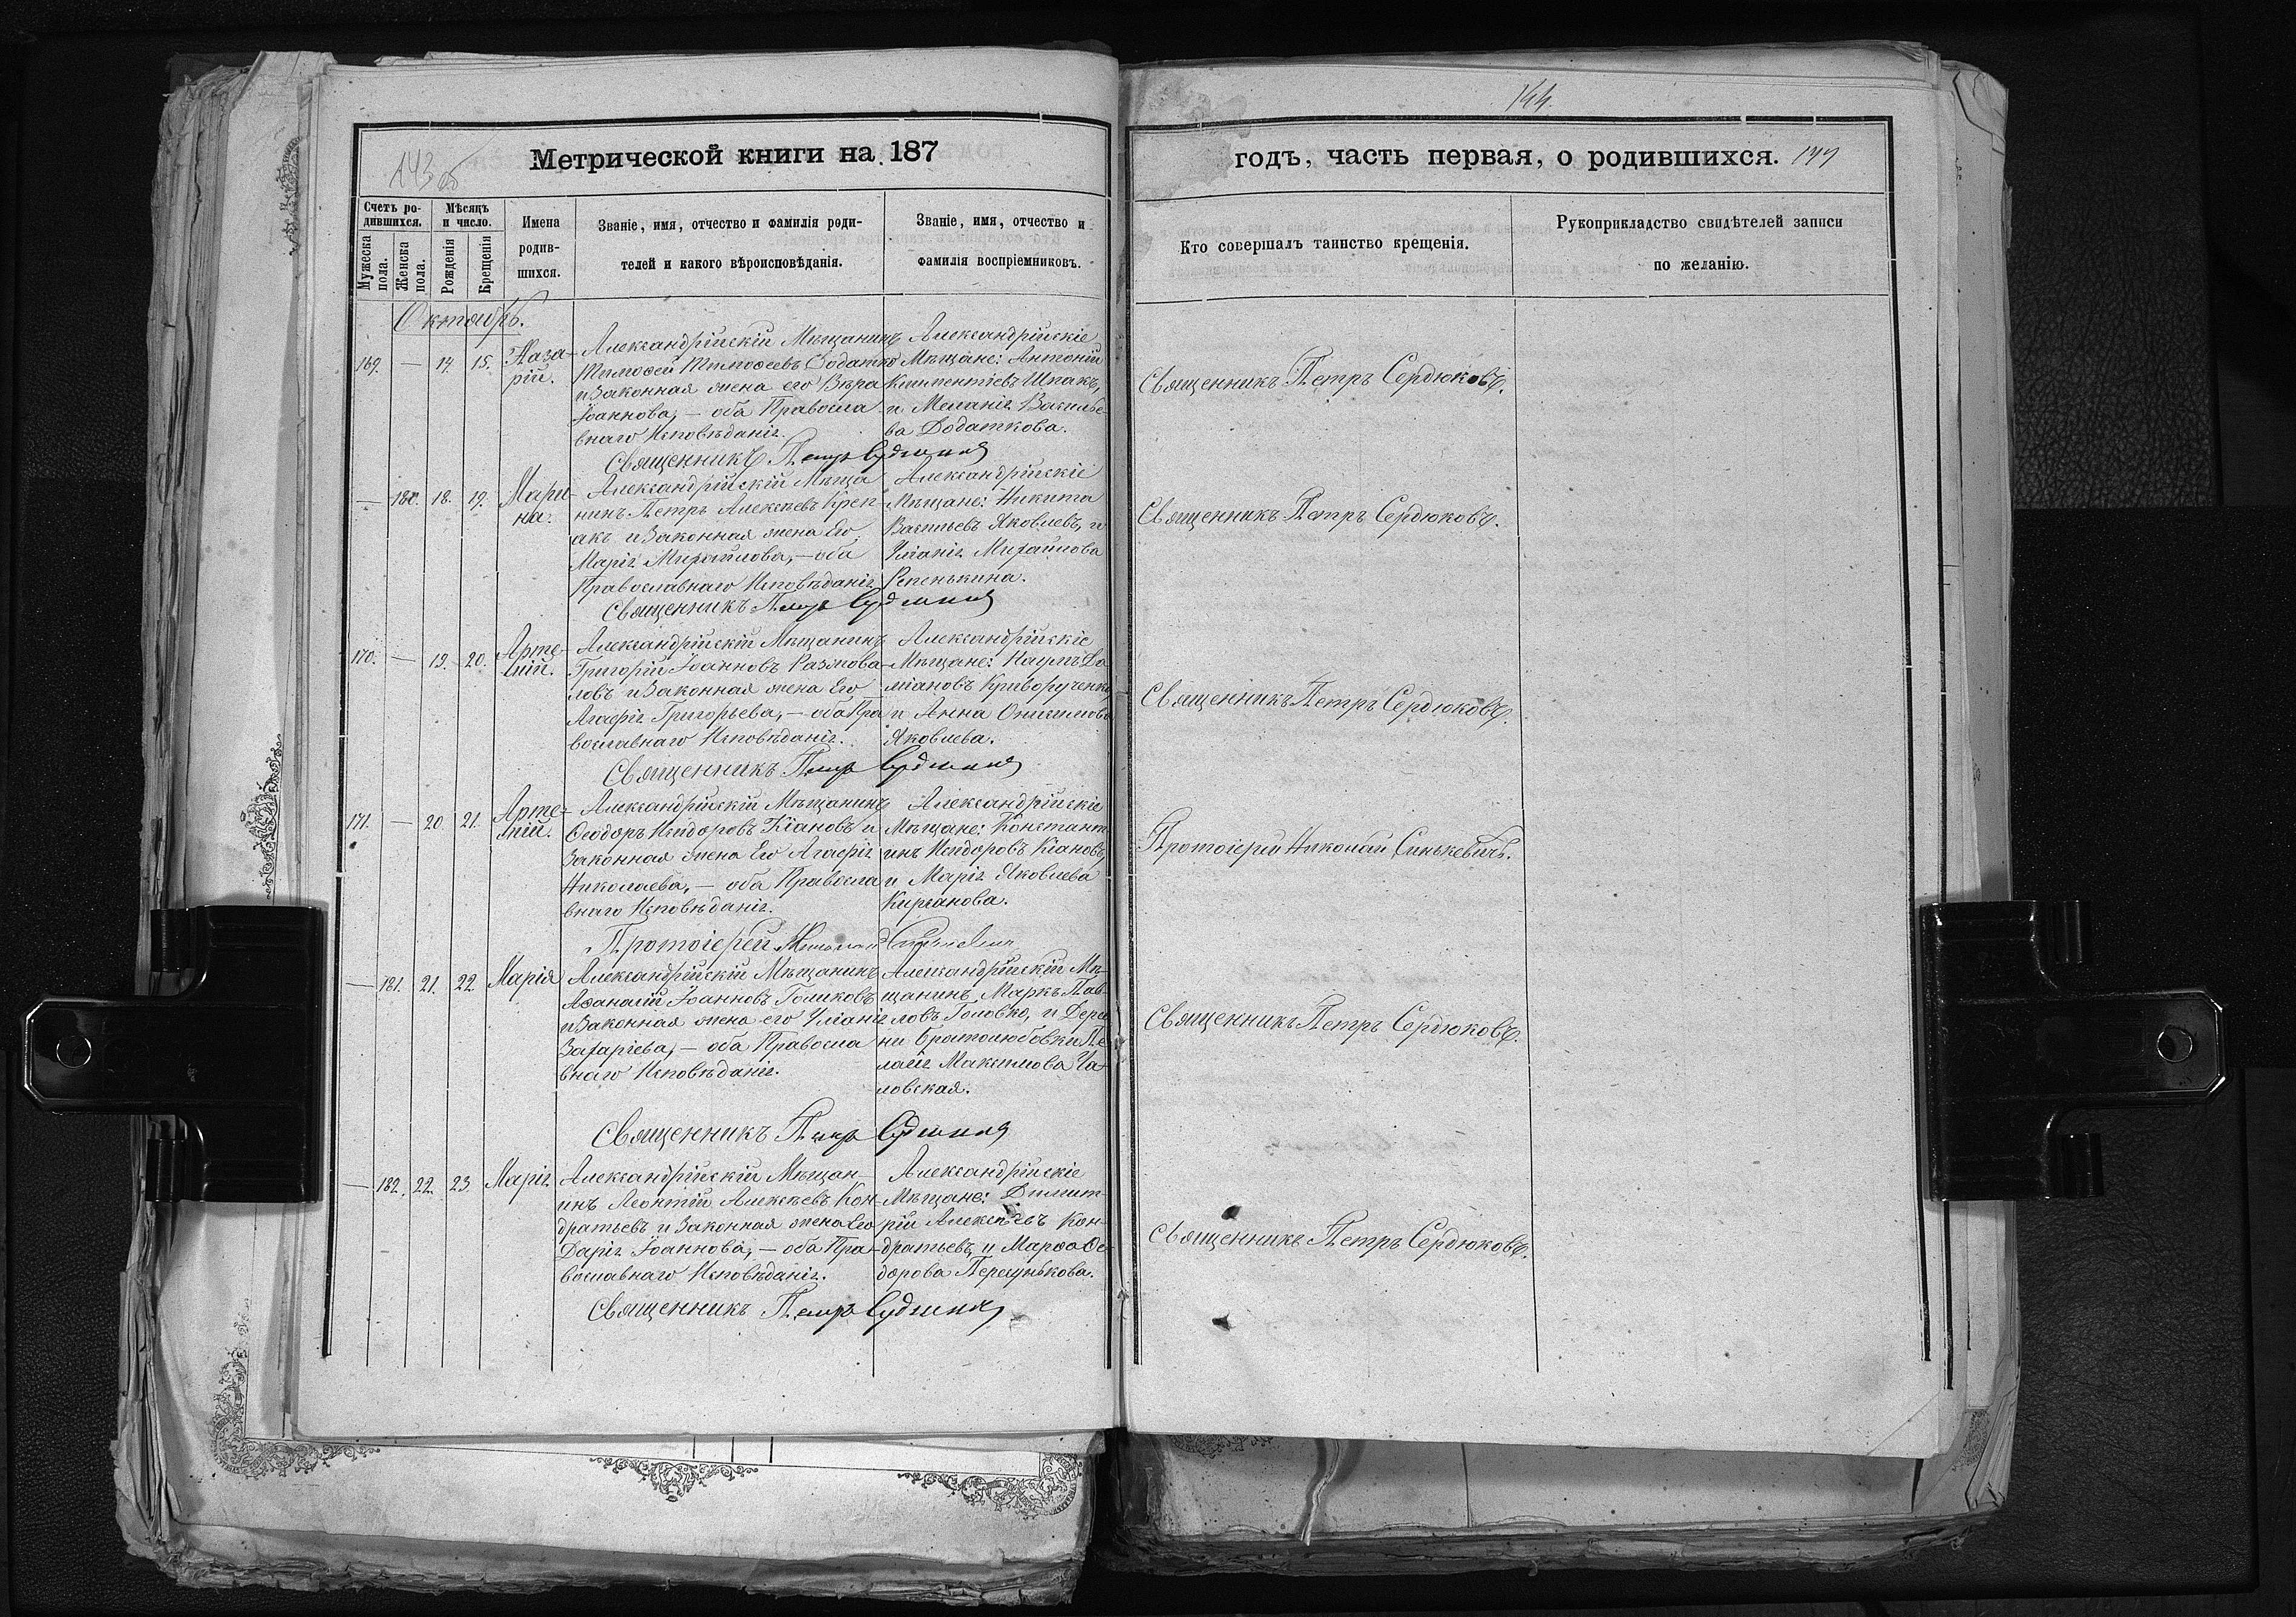 144.
143 об
Метрической книги на 187
годъ, часть первая, о родившихся.
Счетъ ро-
дившихся.
Мужеска
пола.
Женска
пола.
Мѣсяцъ
и число.
Рожденія
Крещенія
Имена
родив-
шихся.
Званіе, имя, отчество и фамилія роди-
телей и какого вѣроисповѣданія.
Званіе, имя, отчество и
фамилія воспріемниковъ.
Кто совершалъ таинство крещенія.
Рукоприкладство свидѣтелей записи
по желанію.
Октябрь.
169. — 14. 15. Наза-
рій.
Александрійскій Мѣщанинъ
Тимоѳей Тимоѳеевъ Додатко
и Законная жена его Вѣра
Іоаннова, — оба Правосла
внаго Исповѣданія.
Александрійскіе
Мѣщане: Антоній
Климентіевъ Шпакъ,
и Меланія Василье-
ва Додаткова.
Священникъ Петръ Сердюковъ.
Священникъ Петръ Сердюковъ
— 180. 18. 19. Мари-
на.
Александрійскій Мѣща
нинъ Петръ Алексѣевъ Креп-
акъ и Законная жена Его
Марія Михайлова, — оба
Православнаго Исповѣданія
Александрійскіе
Мѣщане: Никита
Васильевъ Яковлевъ, и
Уліанія Михайлова
Репенькина.
Священникъ Петръ Сердюковъ.
Священникъ Петръ Сердюковъ
170. — 19. 20. Арте-
мій.
Александрійскій Мѣщанинъ
Григорій Іоанновъ Размова-
ловъ и Законная жена Его
Агафія Григорьева, — оба Пра
вославнаго Исповѣданія.
Александрійскіе
Мѣщане: Наумъ Да
міановъ Криворученко
и Анна Онисимова
Яковлева.
Священникъ Петръ Сердюковъ.
Священникъ Петръ Сердюковъ
171. — 20. 21. Арте-
мій.
Александрійскій Мѣщанинъ
Ѳеодоръ Исидоровъ Кіановъ и
Законная жена Его Агафія
Николаева, — оба Правосла
внаго Исповѣданія.
Александрійскіе
Мѣщане: Констант-
инъ Исидоровъ Кіановъ,
и Марія Яковлева
Кирганова.
Протоіерей Николай Синькевичъ.
Протоіерей Николай Синькевичъ
— 181. 21. 22. Марія
Александрійскій Мѣщанинъ
Аѳанасій Іоанновъ Голиковъ
и Законная жена его Уліанія
Захаріева, — оба Правосла
внаго Исповѣданія.
Александрійскій Мѣ-
щанинъ Маркъ Пав-
ловъ Головко, и Дерев
ни Братолюбовки Пе
лагія Максимова Ча-
ловская.
Священникъ Петръ Сердюковъ.
Священникъ Петръ Сердюковъ
— 182. 22. 23. Марія
Александрійскій Мѣщан-
инъ Леонтій Алексѣевъ Кон-
дратьевъ и Законная жена Его
Дарія Іоаннова, — оба Пра-
вославнаго Исповѣданія.
Александрійскіе
Мѣщане: Димит-
рій Алексѣевъ Кон-
дратьевъ, и Марѳа Ѳе-
дорова Перепунькова.
Священникъ Петръ Сердюковъ.
Священникъ Петръ Сердюковъ